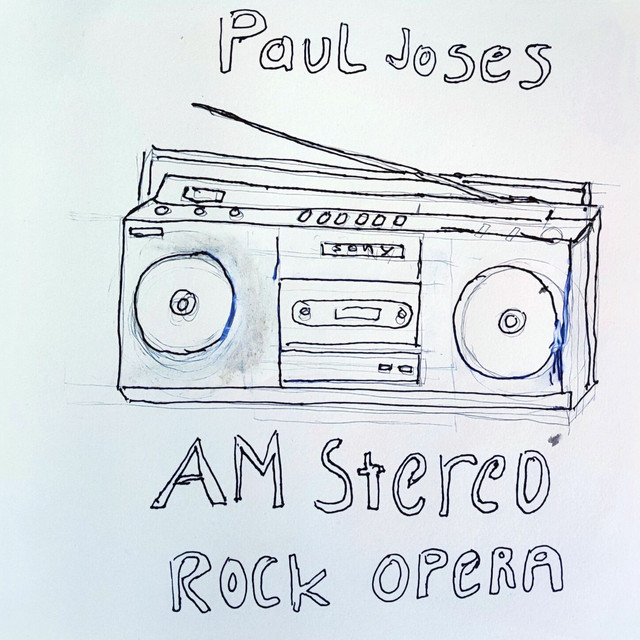 Paul Joses
SONY
AM Stereo
ROCK OPERA